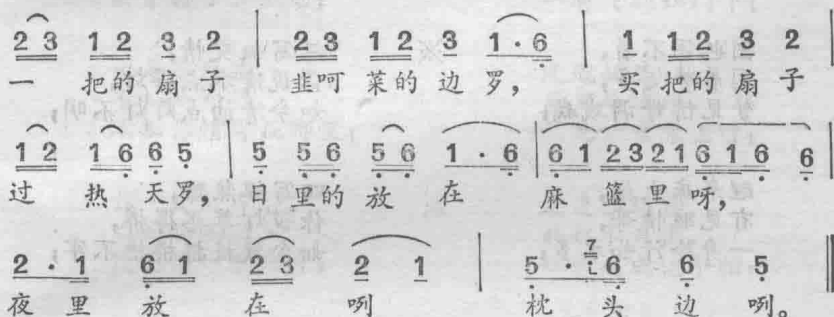 2 3 1 2 3 2 | 2 3 1 2 3 1 · 6 | 1 1 2 3 2
一 把的 扇 子 韭呵 菜的 边 罗, 买 把的 扇 子
1 2 1 6 6 5 | 5 5 6 5 6 1 · 6 | 6 1 2 3 2 1 6 1 6 6
过 热 天罗, 日 里的 放 在 麻 篮 里 呀,
2 · 1 6 1 2 3 2 1 | 5 · 7 6 6 5
夜 里 放 在 咧 枕 头 边 咧。